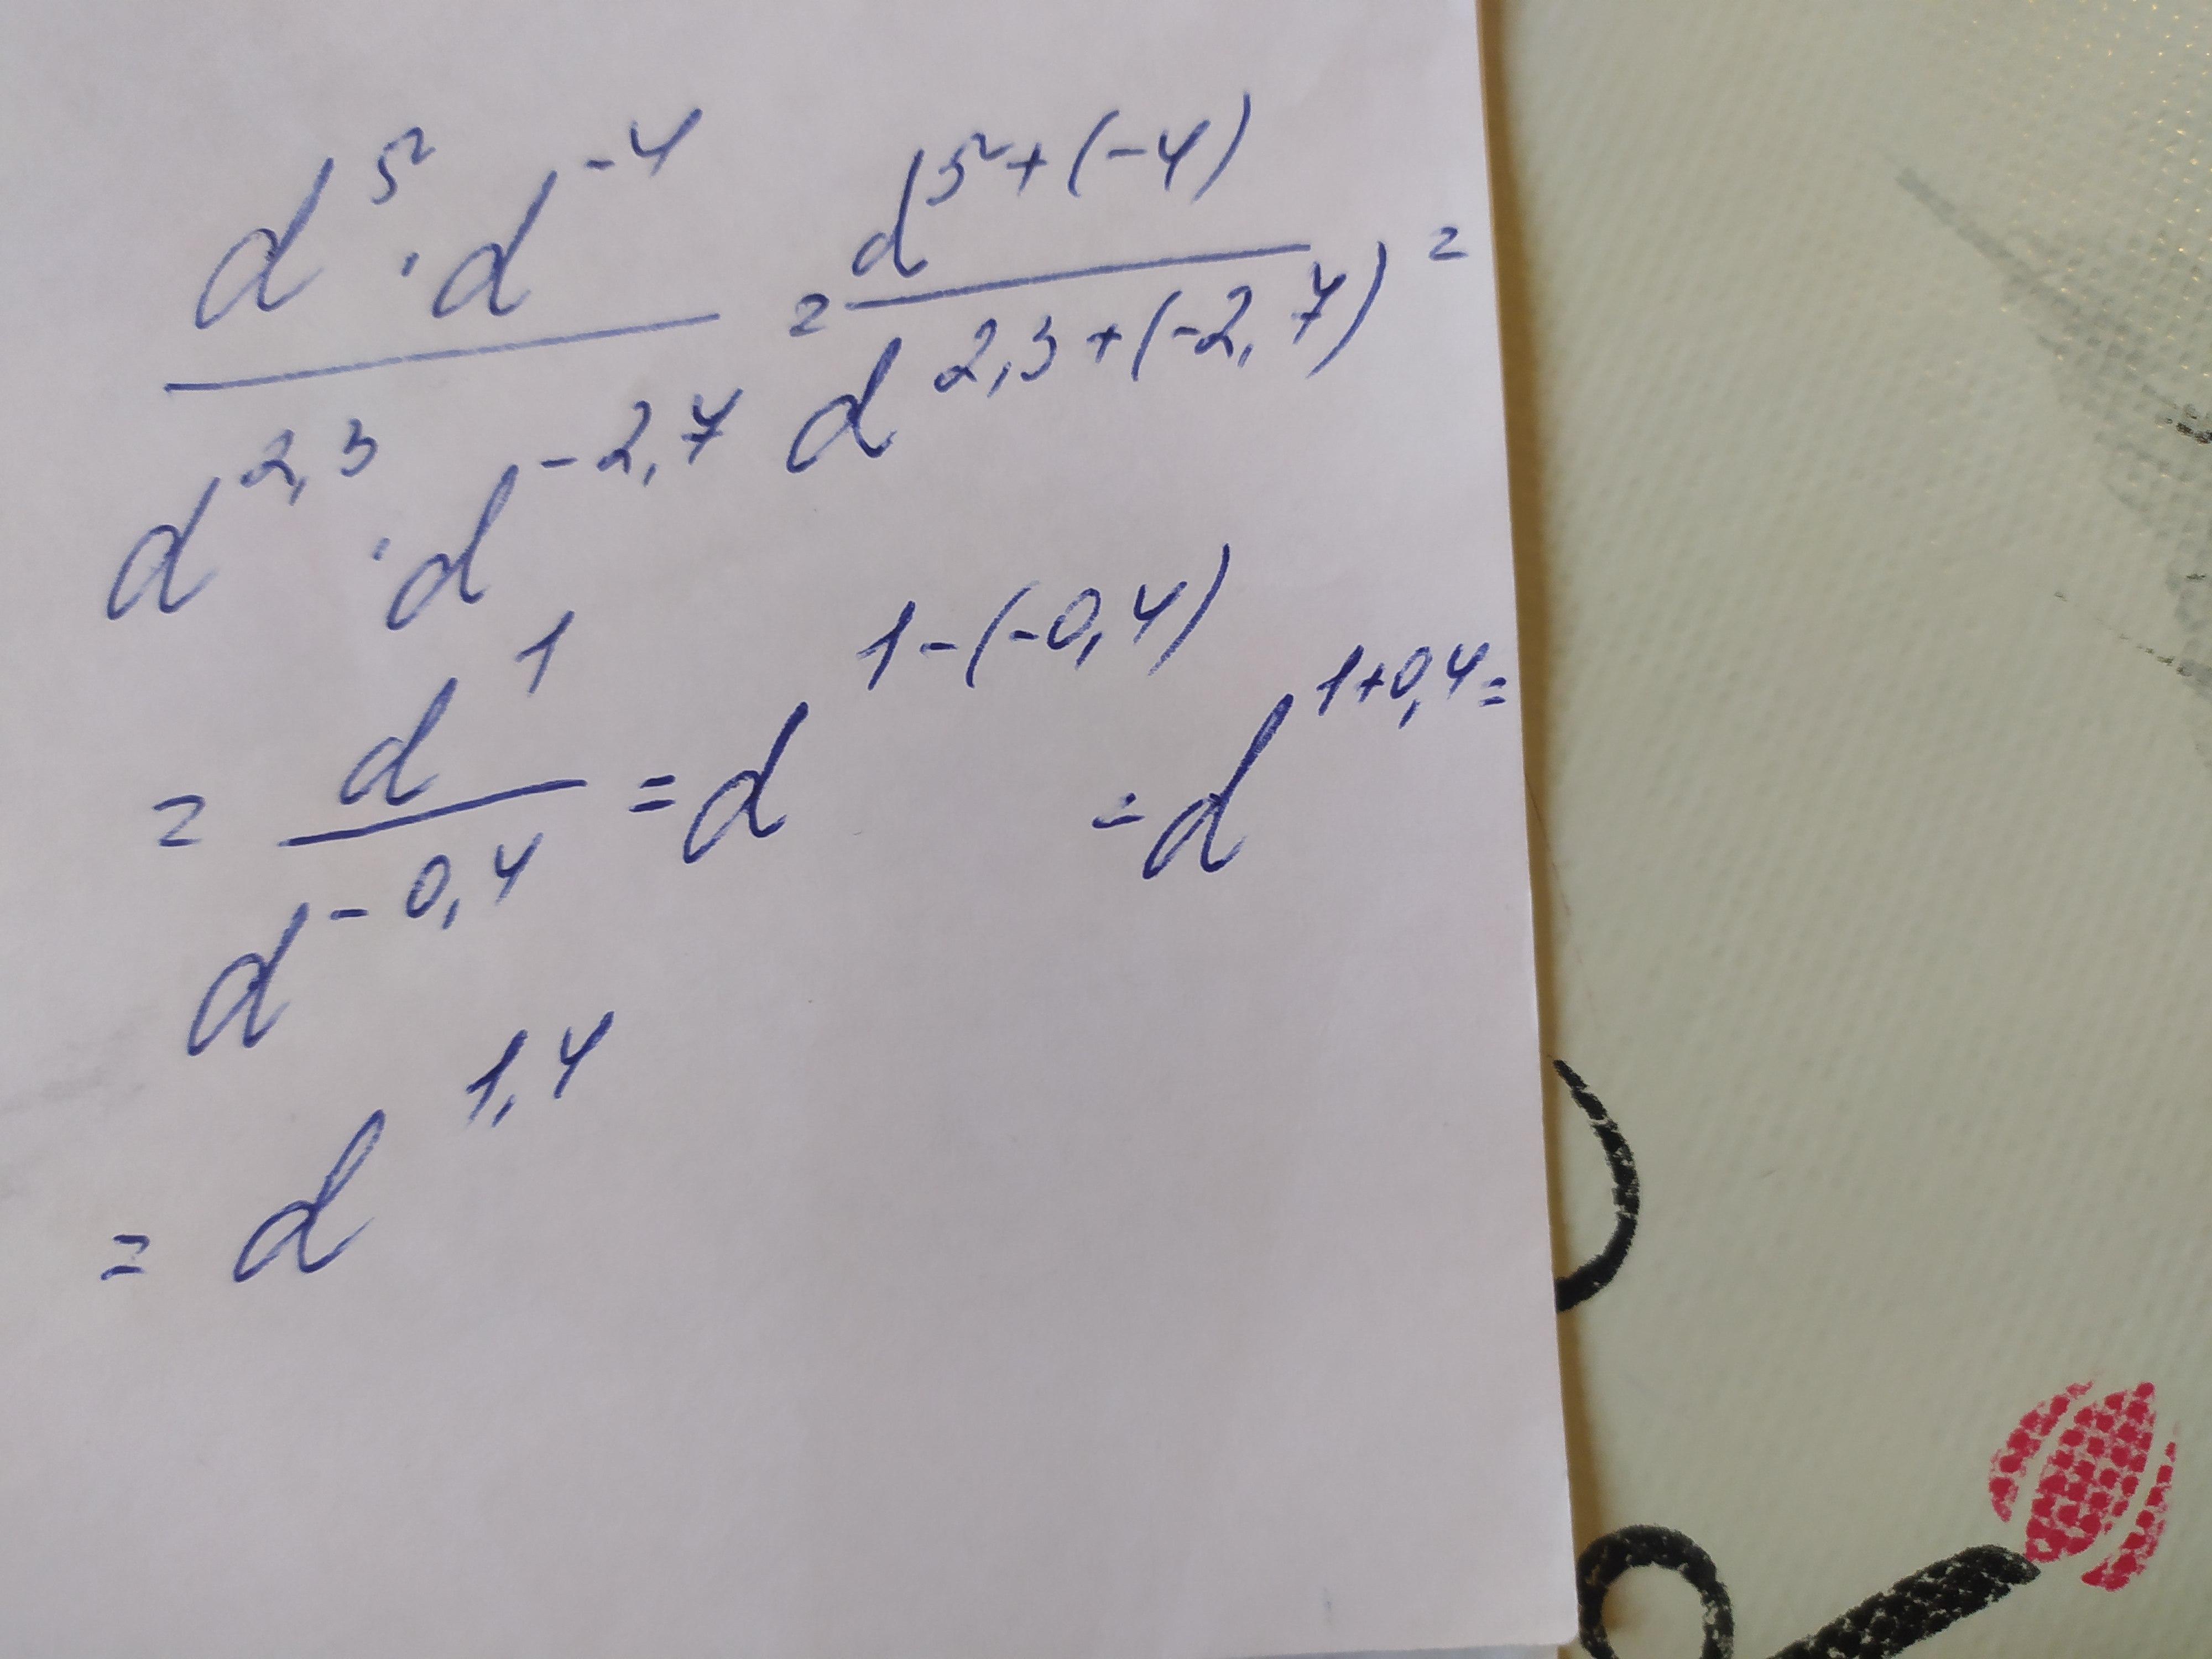 d⁵ · d⁻⁴ / d^2,3 · d^-2,7 = d^5+(-4) / d^2,3+(-2,7) =
= d¹ / d^-0,4 = d^1-(-0,4) = d^1+0,4 =
= d^1,4